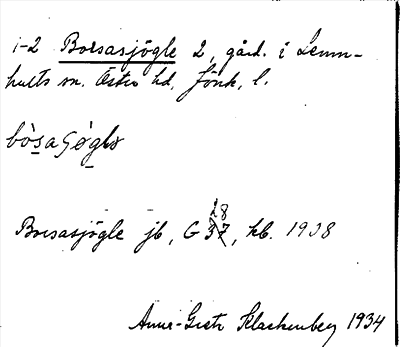 1-2 Borsasjögle 2, gård. i Lemn-
hults sn. Östra hd, Jönk. l.
bò̱saʂø̀gḻə
28
Borsasjögle jb, G 37, kb. 1938
Anna-Greta Klackenberg 1934